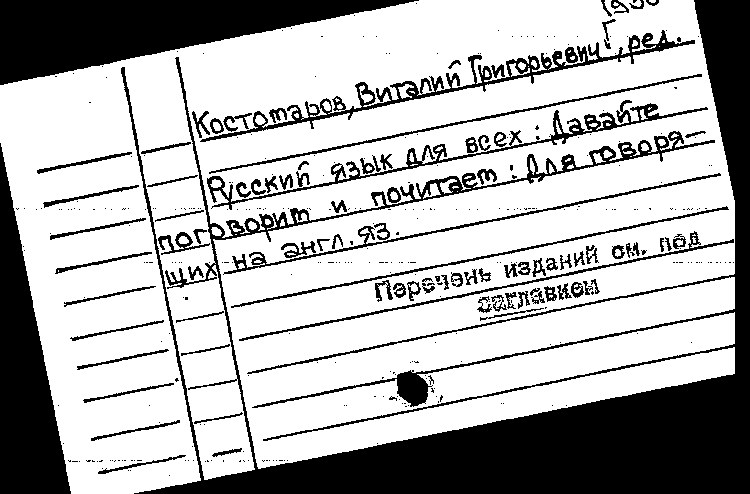 Костомаров, Виталий Григорьевич, ред.
Русский язык для всех : Давайте
поговорит и почитает : Для говоря-
щих на англ. яз.
Перечень изданий см. под
заглавием